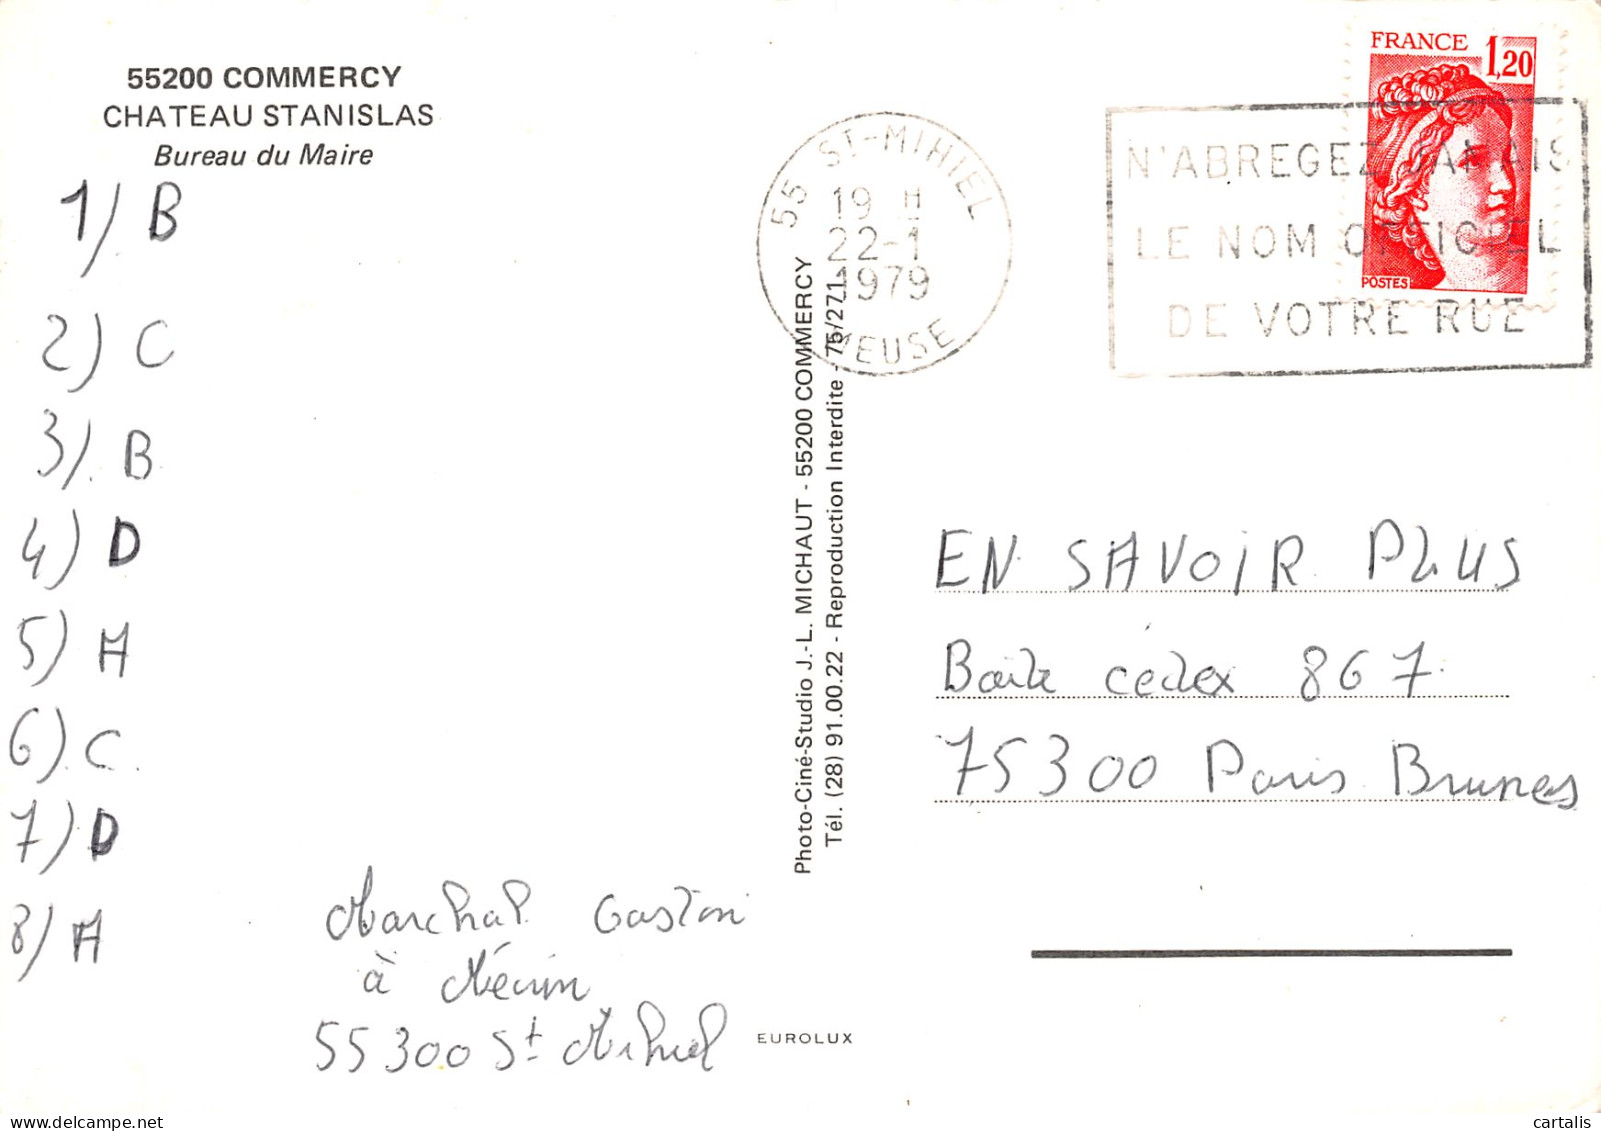 55200 COMMERCY
CHATEAU STANISLAS
Bureau du Maire
1) B
2) C
3) B
4) D
5) A
6) C
7) D
8) A
Marchal Gaston
à Mécrin
55300 St Mihiel
EUROLUX
Photo-Ciné-Studio J.-L. MICHAUT - 55200 COMMERCY
Tél. (28) 91.00.22 - Reproduction Interdite - 75/271
55 ST-MIHIEL
19 H
22-1
1979
MEUSE
FRANCE 1,20
POSTES
N'ABREGEZ JAMAIS
LE NOM OFFICIEL
DE VOTRE RUE
EN SAVOIR PLUS
Boite cédex 867
75300 Paris Brunes
cartalis